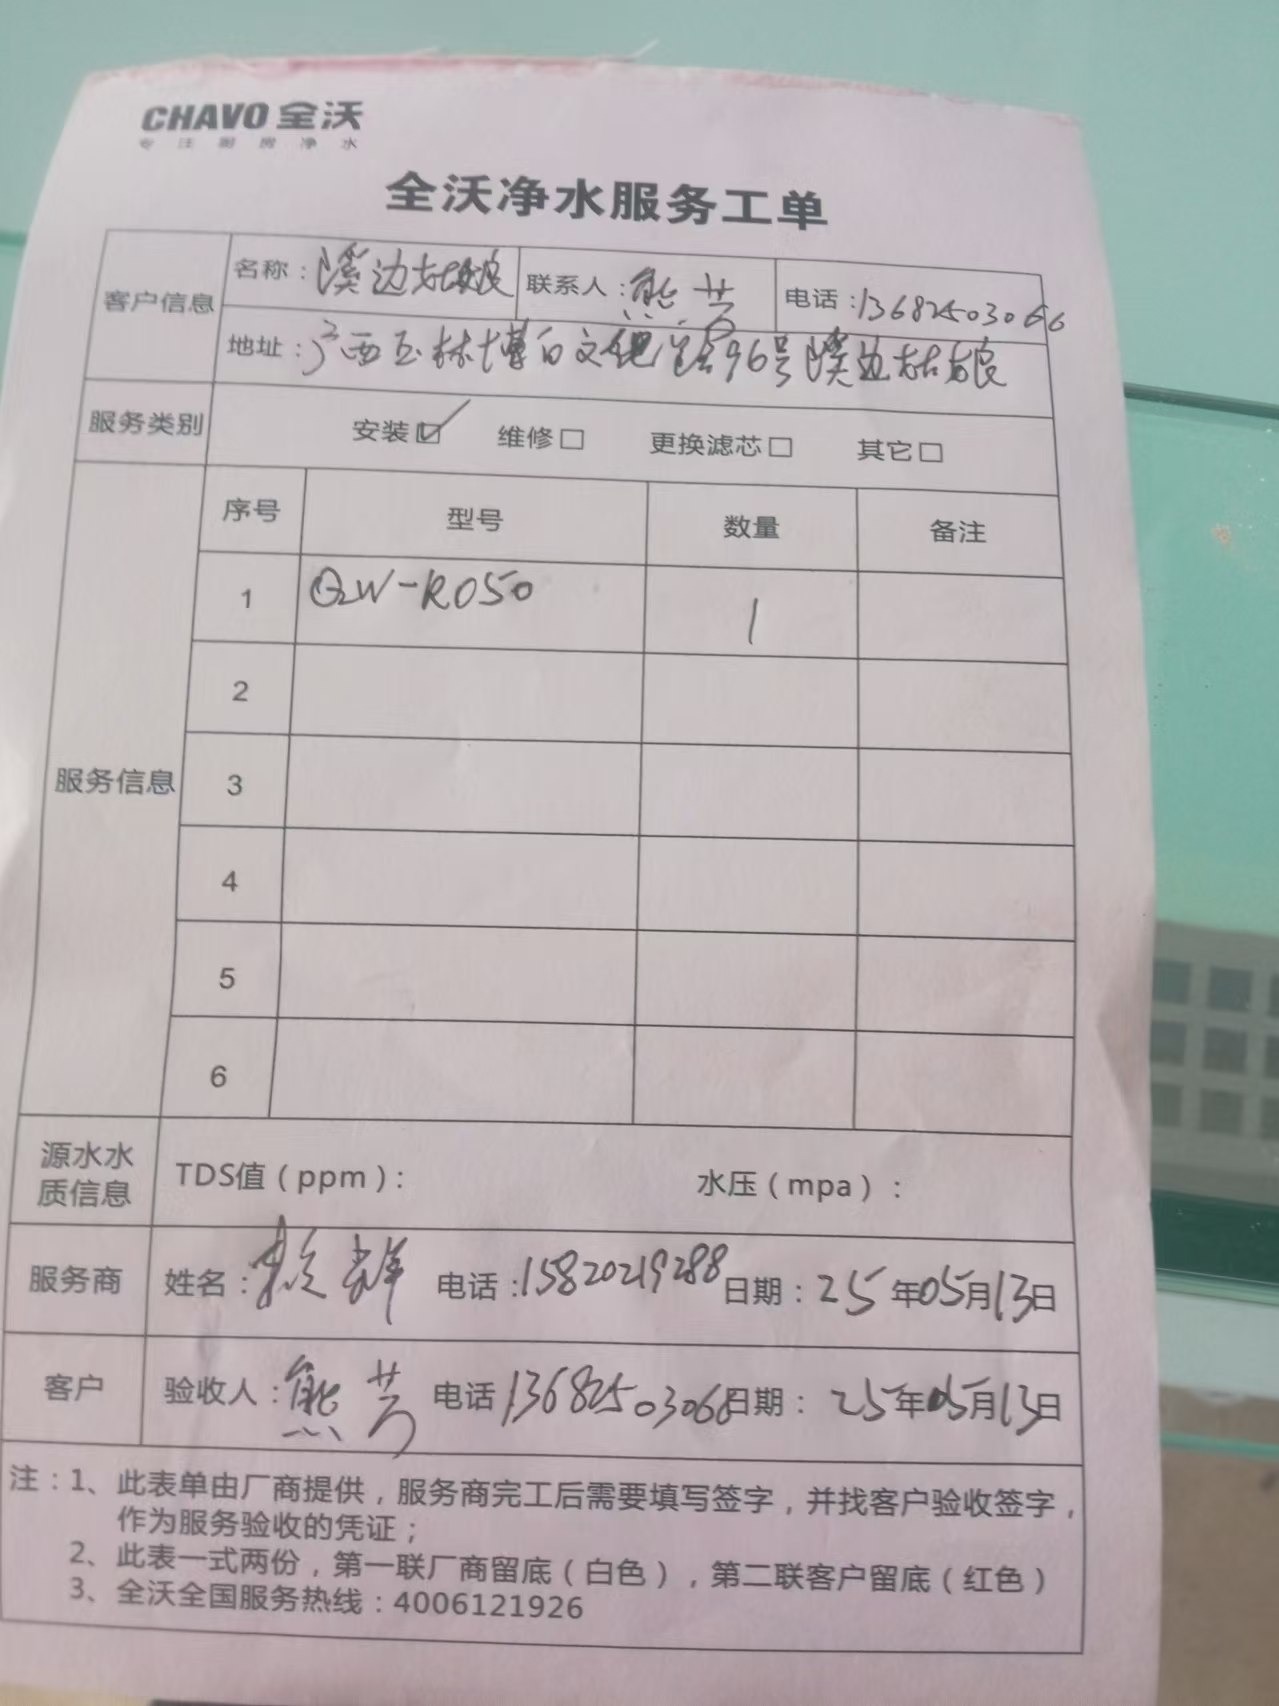 CHAVO 全沃
专注厨房净水
全沃净水服务工单
客户信息 名称：溪边姑娘 联系人：熊芳 电话：13682503066
地址：广西玉林博白文 96号溪边姑娘
服务类别 安装☑ 维修□ 更换滤芯□ 其它□
服务信息 序号 型号 数量 备注
1 QW-RO50 1
2
3
4
5
6
源水水质信息 TDS值（ppm）： 水压（mpa）：
服务商 姓名： 群 电话：15820219288 日期：25年05月13日
客户 验收人：熊芳 电话 13682503066 日期：25年05月13日
注：1、此表单由厂商提供，服务商完工后需要填写签字，并找客户验收签字，
作为服务验收的凭证；
2、此表一式两份，第一联厂商留底（白色），第二联客户留底（红色）
3、全沃全国服务热线：4006121926